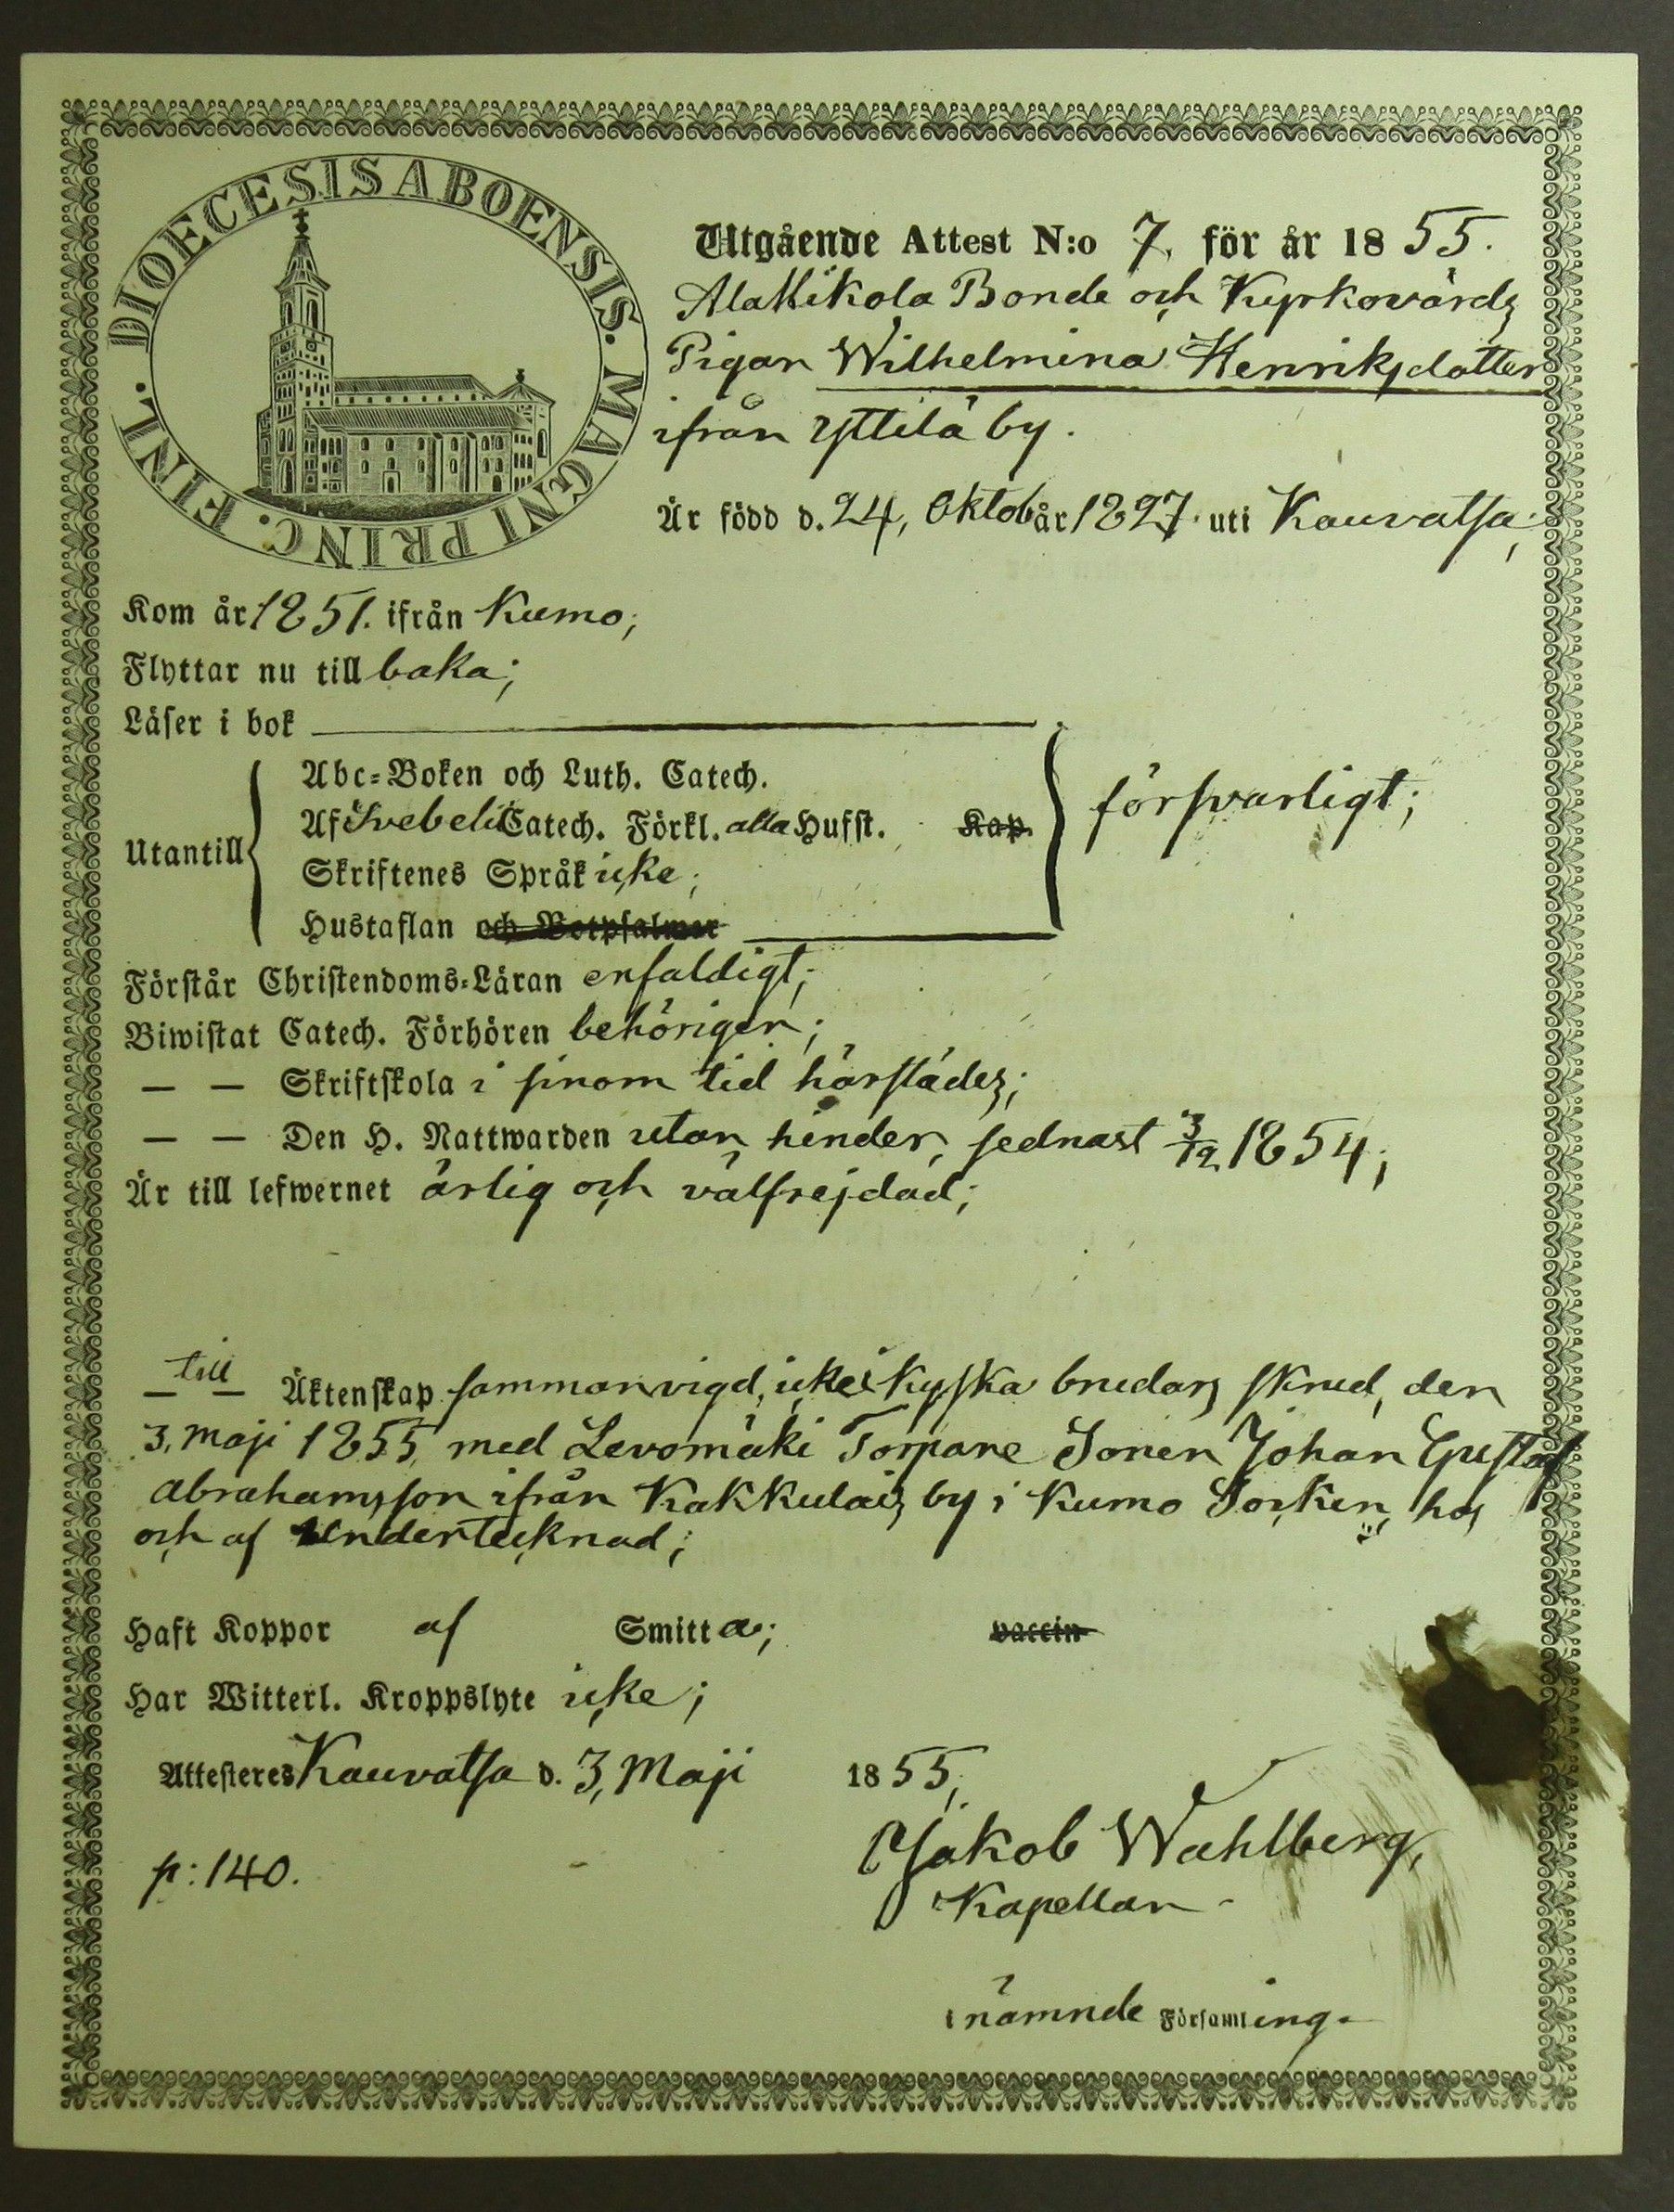 DIOECESIS ABOENSIS. MAGNI PRINC. FINL.
Utgående Attest N:o 7. för år 1855.
AlaMikola Bonde och Kyrkovärds
Pigan Wilhelmina Henriksdotter
ifrån Yttilä by.
Är född d. 24, Oktob år 1827. uti Kauvatsa;
Kom år 1851. ifrån Kumo;
Flyttar nu till baka;
Läser i bok
Abc-Boken och Luth. Catech.
Af Svebelii Catech. Förkl. alla Hufst. Kap.
försvarligt;
Utantill
Skriftenes Språk icke;
Hustaflan och Botpsalmer
Förstår Christendoms-Läran enfaldigt;
Biwistat Catech. Förhören behörigen;
— — Skriftskola i sinom tid härstädes;
— — Den H. Nattwarden utan hinder, sednast 3/12 1854;
Är till lefwernet ärlig och välfrejdad;
till
— — Äktenskap sammanvigd, icke i kyska brudars skrud, den
3, Maji 1855, med Levomäki Torpare Sonen Johan Gustaf
Abrahamsson ifrån Kakkulais by i Kumo Socken, hos
och af Undertecknad;
Haft Koppor af Smitta; vaccin
Har Witterl. Kroppslyte icke;
Attesteres Kauvatsa d. 3, Maji 1855,
Jakob Wahlberg,
p: 140.
Kapellan
i nämnde Församling.